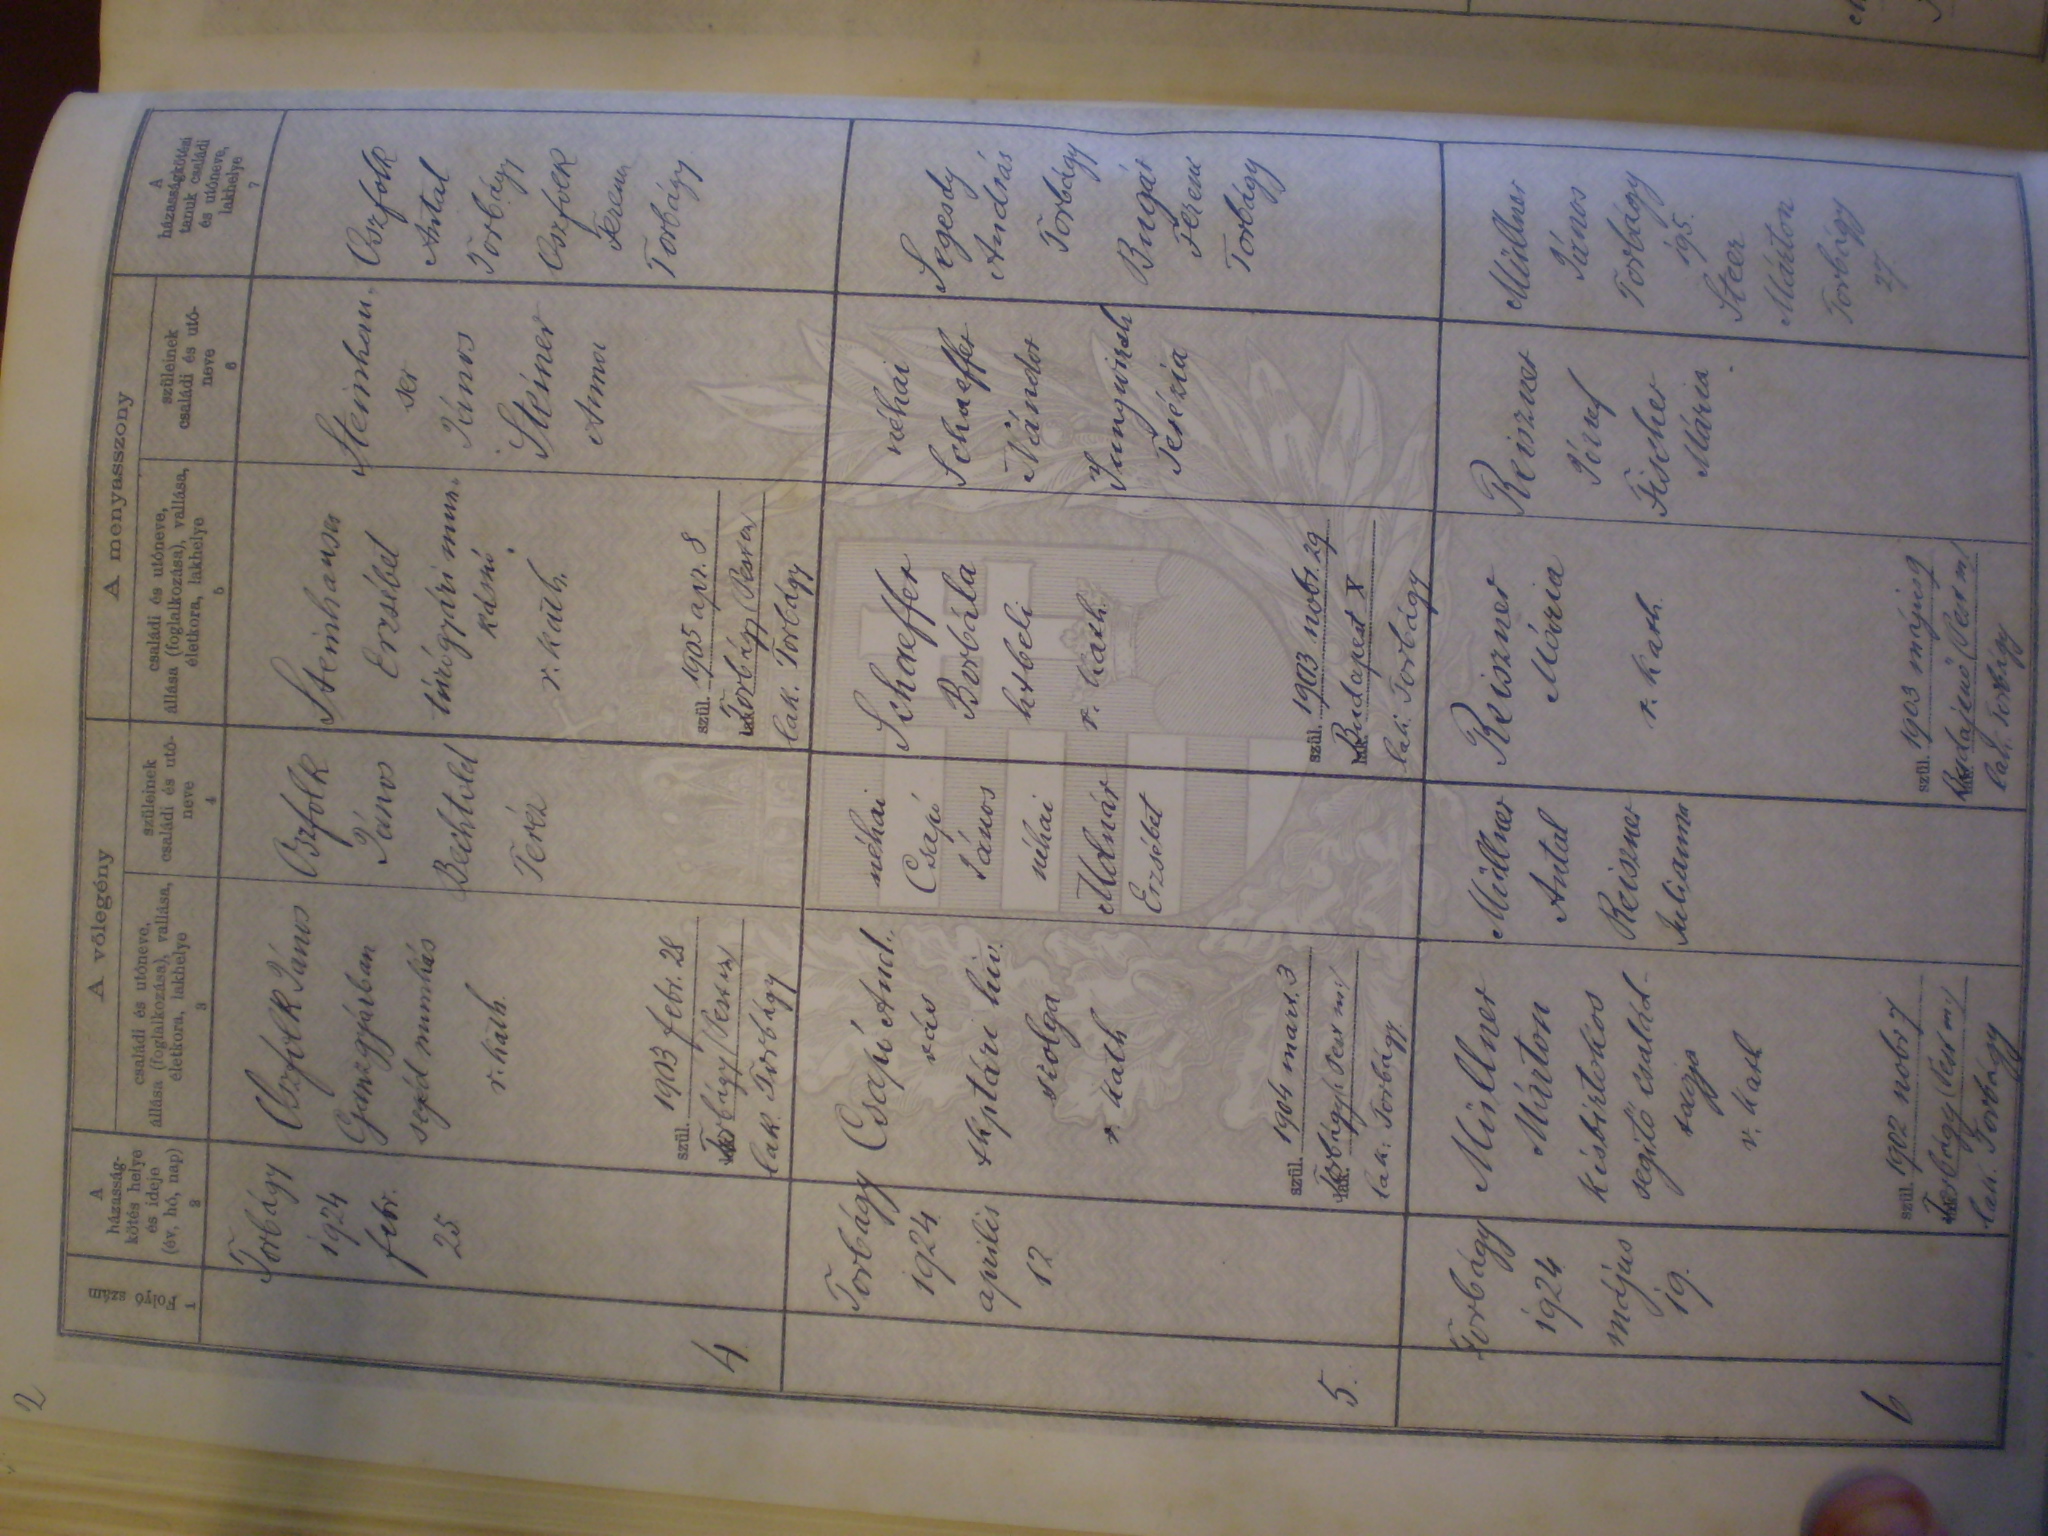 2
A
házasság-
kötés helye
és ideje
(év, hó, nap)
2
Folyó szám
1
A vőlegény
családi és utóneve,
állása (foglalkozása), vallása,
életkora, lakhelye
3
szüleinek
családi és utó-
neve
4
A menyasszony
családi és utóneve,
állása (foglalkozása), vallása,
életkora, lakhelye
5
szüleinek
családi és utó-
neve
6
A
házasságkötési
tanuk családi
és utóneve,
lakhelye
7
4
Torbágy
1924
febr.
25
Oszfolk János
Ganzgyárban
segéd munkás
r. kath.
szül. 1903 febr. 28
Torbágy (Pest m)
lak. Torbágy
Oszfolk
János
Bechtold
Teréz
Steinhauser
Erzsébet
r. kath.
szül. 1905 apr. 8
Torbágy (Pest m)
lak. Torbágy
Steinhau-
ser
János
Steiner
Anna
Oszfolk
Antal
Torbágy
Oszfolk
Ferenc
Torbágy
5.
Torbágy
1924
április
12
Csapó And-
rás
szolga
r. kath
szül. 1904 mart. 3
Torbágy (Pest m)
lak. Torbágy
néhai
Csapó
János
néhai
Molnár
Erzsébet
Schaeffer
Borbála
htbeli
r. kath.
szül. 1903 nobr. 29
Budapest X
lak. Torbágy
néhai
Schaeffer
Nándor
Jungwirth
Terézia
Segesdy
András
Torbágy
Bugár
Ferenc
Torbágy
6
Torbágy
1924
május
19.
Müllner
Márton
kisbirtokos
segítő család-
tagja
r. kath
szül. 1902 nobr 7
Torbágy (Pest m)
lak. Torbágy
Müllner
Antal
Reiszner
Julianna
Reiszner
Mária
r. kath.
szül. 1903 május 9
Budajenő (Pest m)
lak. Torbágy
Reiszner
József
Fischer
Mária
Müllner
János
Torbágy
195.
Steer
Márton
Torbágy
27.